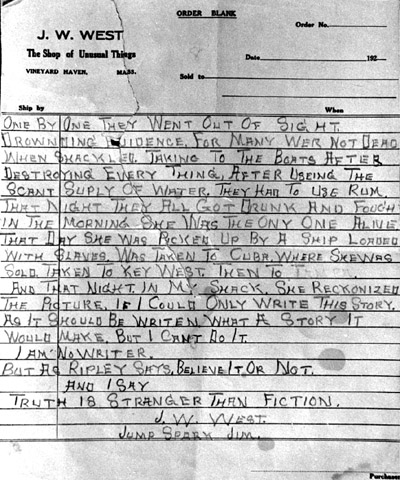 ORDER BLANK
Order No.
J. W. WEST
The Shop of Unusual Things
VINEYARD HAVEN, MASS.
Date 192
Sold to
Ship by When
ONE BY ONE THEY WENT OUT OF SIGHT.
DROWNING EVIDENCE. FOR MANY WER NOT DEAD
WHEN SHACKLED. TAKING TO THE BOATS AFTER
DESTROYING EVERY THING, AFTER USEING THE
SCANT SUPLY OF WATER, THEY HAD TO USE RUM.
THAT NIGHT THEY ALL GOT DRUNK AND FOUGHT
IN THE MORNING SHE WAS THE ONY ONE ALIVE
THAT DAY SHE WAS PICKED UP BY A SHIP LOADED
WITH SLAVES, WAS TAKEN TO CUBA, WHERE SHE WAS
SOLD, TAKEN TO KEY WEST, THEN TO
AND THAT NIGHT, IN MY SHACK, SHE RECKONIZED
THE PICTURE, IF I COULD ONLY WRITE THIS STORY.
AS IT SHOULD BE WRITEN, WHAT A STORY IT
WOULD MAKE, BUT I CANT DO IT.
I AM NO WRITER.
BUT AS RIPLEY SAYS, BELIEVE IT, OR NOT.
AND I SAY
TRUTH IS STRANGER THAN FICTION.
J. W. WEST.
JUMP SPARK JIM.
Purchaser